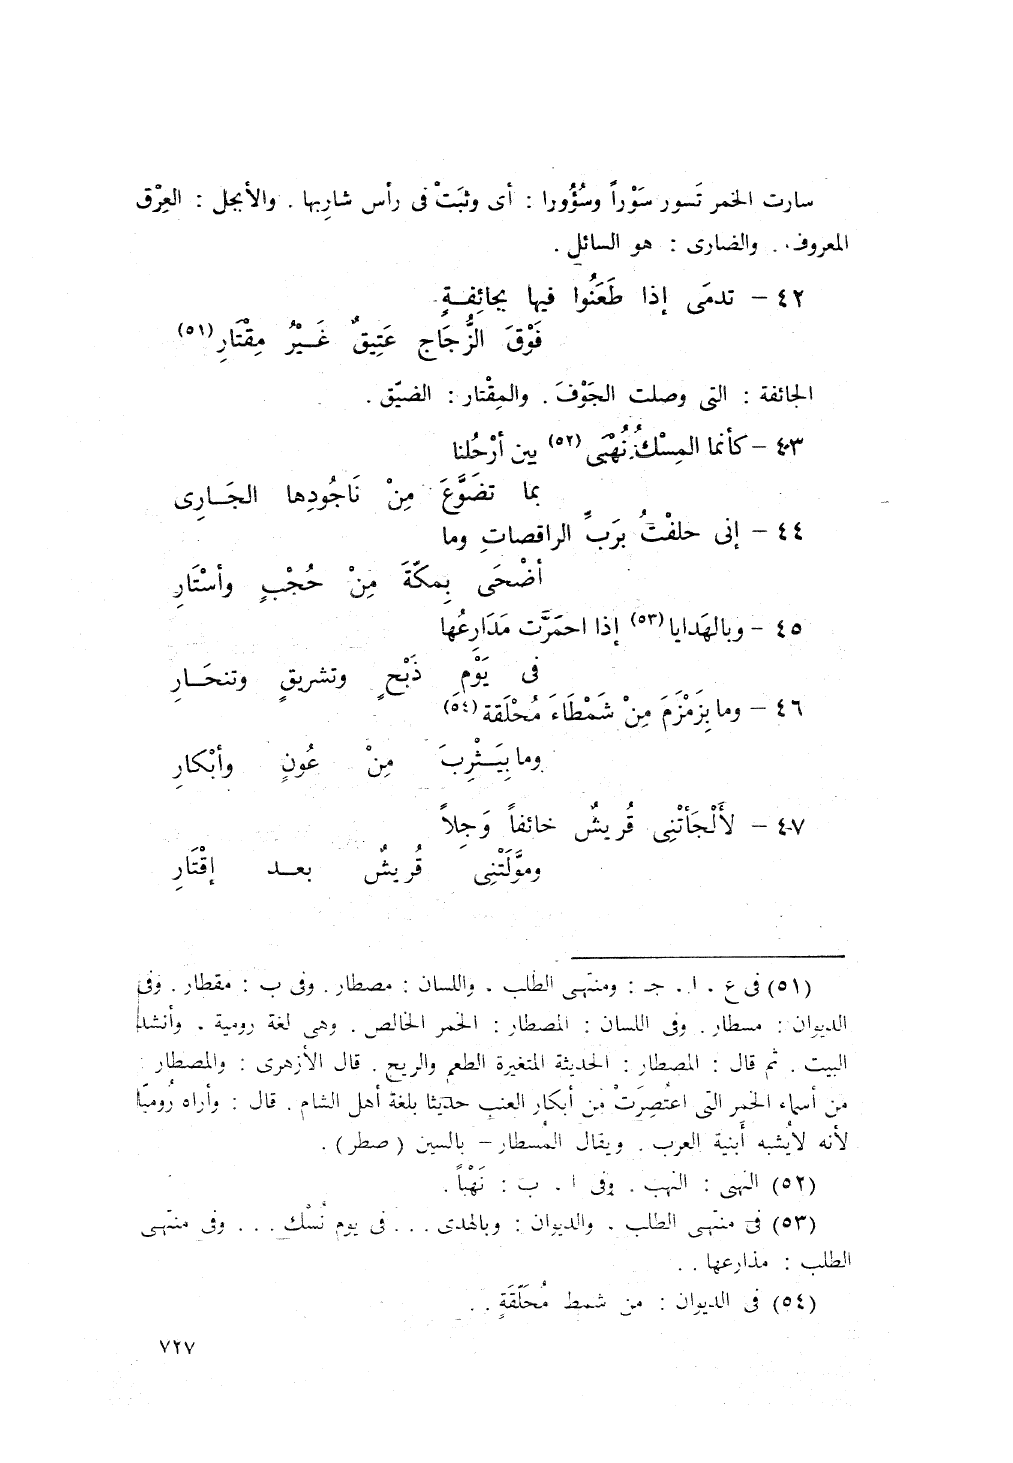 سارت الخمر تَسور سَوْراً وسُؤُورا : أى وثبَتْ فى رأس شارِبها . والأبجل : العِرْق
المعروف . والضارى : هو السائل .
٤٢ – تدمَى إذا طَعَنُوا فيها بجائِفـةٍ
فَوْقَ الزُّجَاجِ عَتِيقٌ غَـيْرُ مِقْتَارِ (٥١)
الجائفة : التى وصلت الجَوْفَ . والمِقْتار : الضيّق .
٤٣ – كأنما المِسْكُ نُهْبَى (٥٢) بين أرْحُلنا
بما تضَوَّعَ مِنْ نَاجُودِها الجَـارِى
٤٤ – إنى حلفْتُ برَبِّ الراقصاتِ وما
أضْحَى بِمكَّةَ مِنْ حُجْبٍ وأسْتَارِ
٤٥ – وبالهَدايا (٥٣) إذا احمَرَّت مَدَارِعُها
فى يَوْمِ ذَبْحٍ وتشريقٍ وتنحَـارِ
٤٦ – وما بِزَمْزَمَ مِنْ شَمْطَاءَ مُحْلَقة (٥٤)
وما بِيَـثْرِبَ مِنْ عُونٍ وأبْكارِ
٤٧ – لأَلْجَأتْنِى قُريشٌ خائفاً وَجِلاً
وموَّلَتْنِى قُريشٌ بعـد إقْتَارِ
(٥١) فى ع . ا . جـ : ومنتهى الطلب . واللسان : مصطار . وفى ب : مقطار . وفى
الديوان : مسطار . وفى اللسان : المصطار : الخمر الخالص . وهى لغة رومية . وأنشد
البيت . ثم قال : المصطار : الحديثة المتغيرة الطعم والريح . قال الأزهرى : والمصطار :
من أسماء الخمر التى اعتُصِرَتْ من أبكار العنب حديثا بلغة أهل الشام . قال : وأراه رُوميّا
لأنه لايُشبه أبنية العرب . ويقال المُسطار – بالسين ( صطر ) .
(٥٢) النهبى : النهب . وفى ا . ب : نَهْباً .
(٥٣) فى منتهى الطلب . والديوان : وبالهدى . . . فى يوم نُسْك . . . وفى منتهى
الطلب : مذارعها . .
(٥٤) فى الديوان : من شمط مُحَلَّقَةٍ . .
٧٢٧